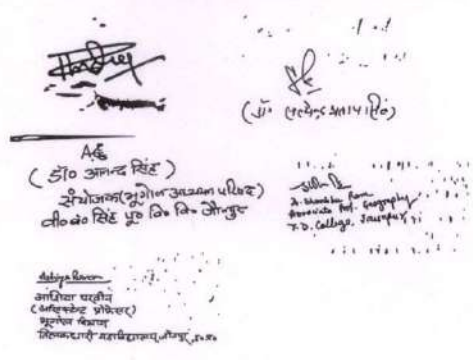 AS
(डॉ० आनन्द सिंह)
संयोजक(भूगोल अध्ययन परिषद)
वी०ब० सिंह पू० वि० वि० जौनपुर
(डॉ० सत्येन्द्र प्रताप सिंह)
Associate Prof. Geography
T.D. College, Jaunpur
आसिया परवीन
(असिस्टेन्ट प्रोफेसर)
भूगोल विभाग
तिलकधारी महाविद्यालय, जौनपुर, उ०प्र०